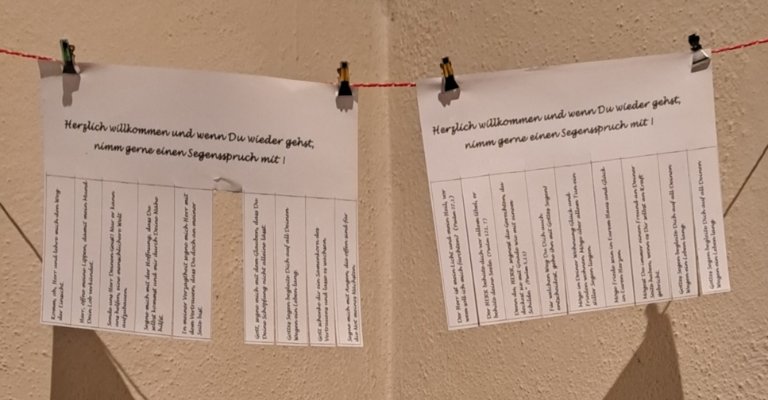 Herzlich willkommen und wenn Du wieder gehst,
nimm gerne einen Segensspruch mit !
Komm, oh, Herr und lehre mich den Weg
der Eintracht.
Herr, öffne meine Lippen, damit mein Mund
Dein Lob verkündet.
Sende uns Herr Deinen Geist! Nur er kann
uns helfen, eine menschlichere Welt
aufzubauen.
Segne mich mit der Hoffnung, dass Du
Hilfe kommst und mir durch Deine Nähe
hilfst.
In meiner Verzagtheit segne mich Herr mit
dem Vertrauen, dass Du doch an meiner
Seite bist.
Gott, segne mich mit dem Glauben, dass Du
Deine Schöpfung nicht alleine lässt.
Gottes Segen begleite Dich auf all Deinen
Wegen ein Leben lang.
Gott schenke dir ein Samenkorn des
Vertrauens und lasse es wachsen.
Segne mich mit Augen, die offen sind für
die Not meines Nächsten.
Herzlich willkommen und wenn Du wieder gehst,
nimm gerne einen Segensspruch mit !
Der Herr ist mein Licht und mein Heil, vor
wem soll ich mich fürchten? (Psalm 27,1)
Der HERR behüte dich vor allem Übel, er
behüte deine Seele. (Psalm 121, 7)
Denn du, HERR, segnest die Gerechten, du
deckst sie mit Gnade wie mit einem
Schilde. (Psalm 5,13)
Für welchen Weg Du Dich auch
entscheidest, gehe ihn mit Gottes Segen!
Möge in Deiner Wohnung Glück und
Frieden wohnen. Möge über allem Tun ein
stiller Segen liegen.
Möge Friede sein in Eurem Haus und Glück
in Eurem Herzen.
Mögest Du immer einen Freund an Deiner
Seite haben, wenn es Dir selbst an Kraft
fehlt.
Gottes Segen begleite Dich auf all Deinen
Wegen ein Leben lang.
Gottes Segen begleite Dich auf all Deinen
Wegen ein Leben lang.